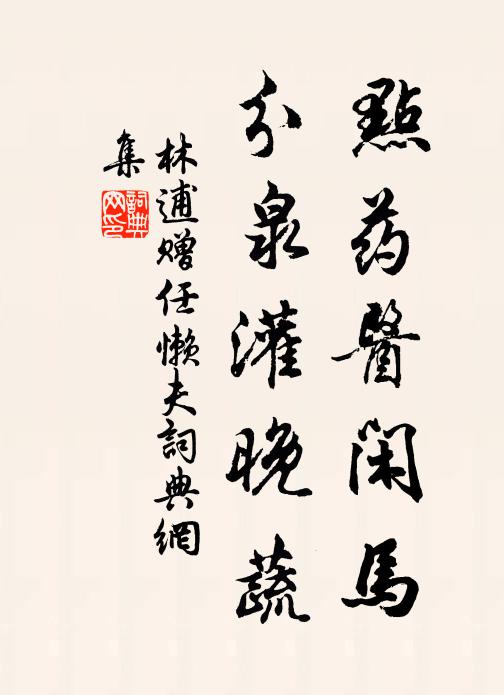 點药醫閑馬
分泉灌晚蔬
林逋贈任懶夫詞典網
集
詞典
网印